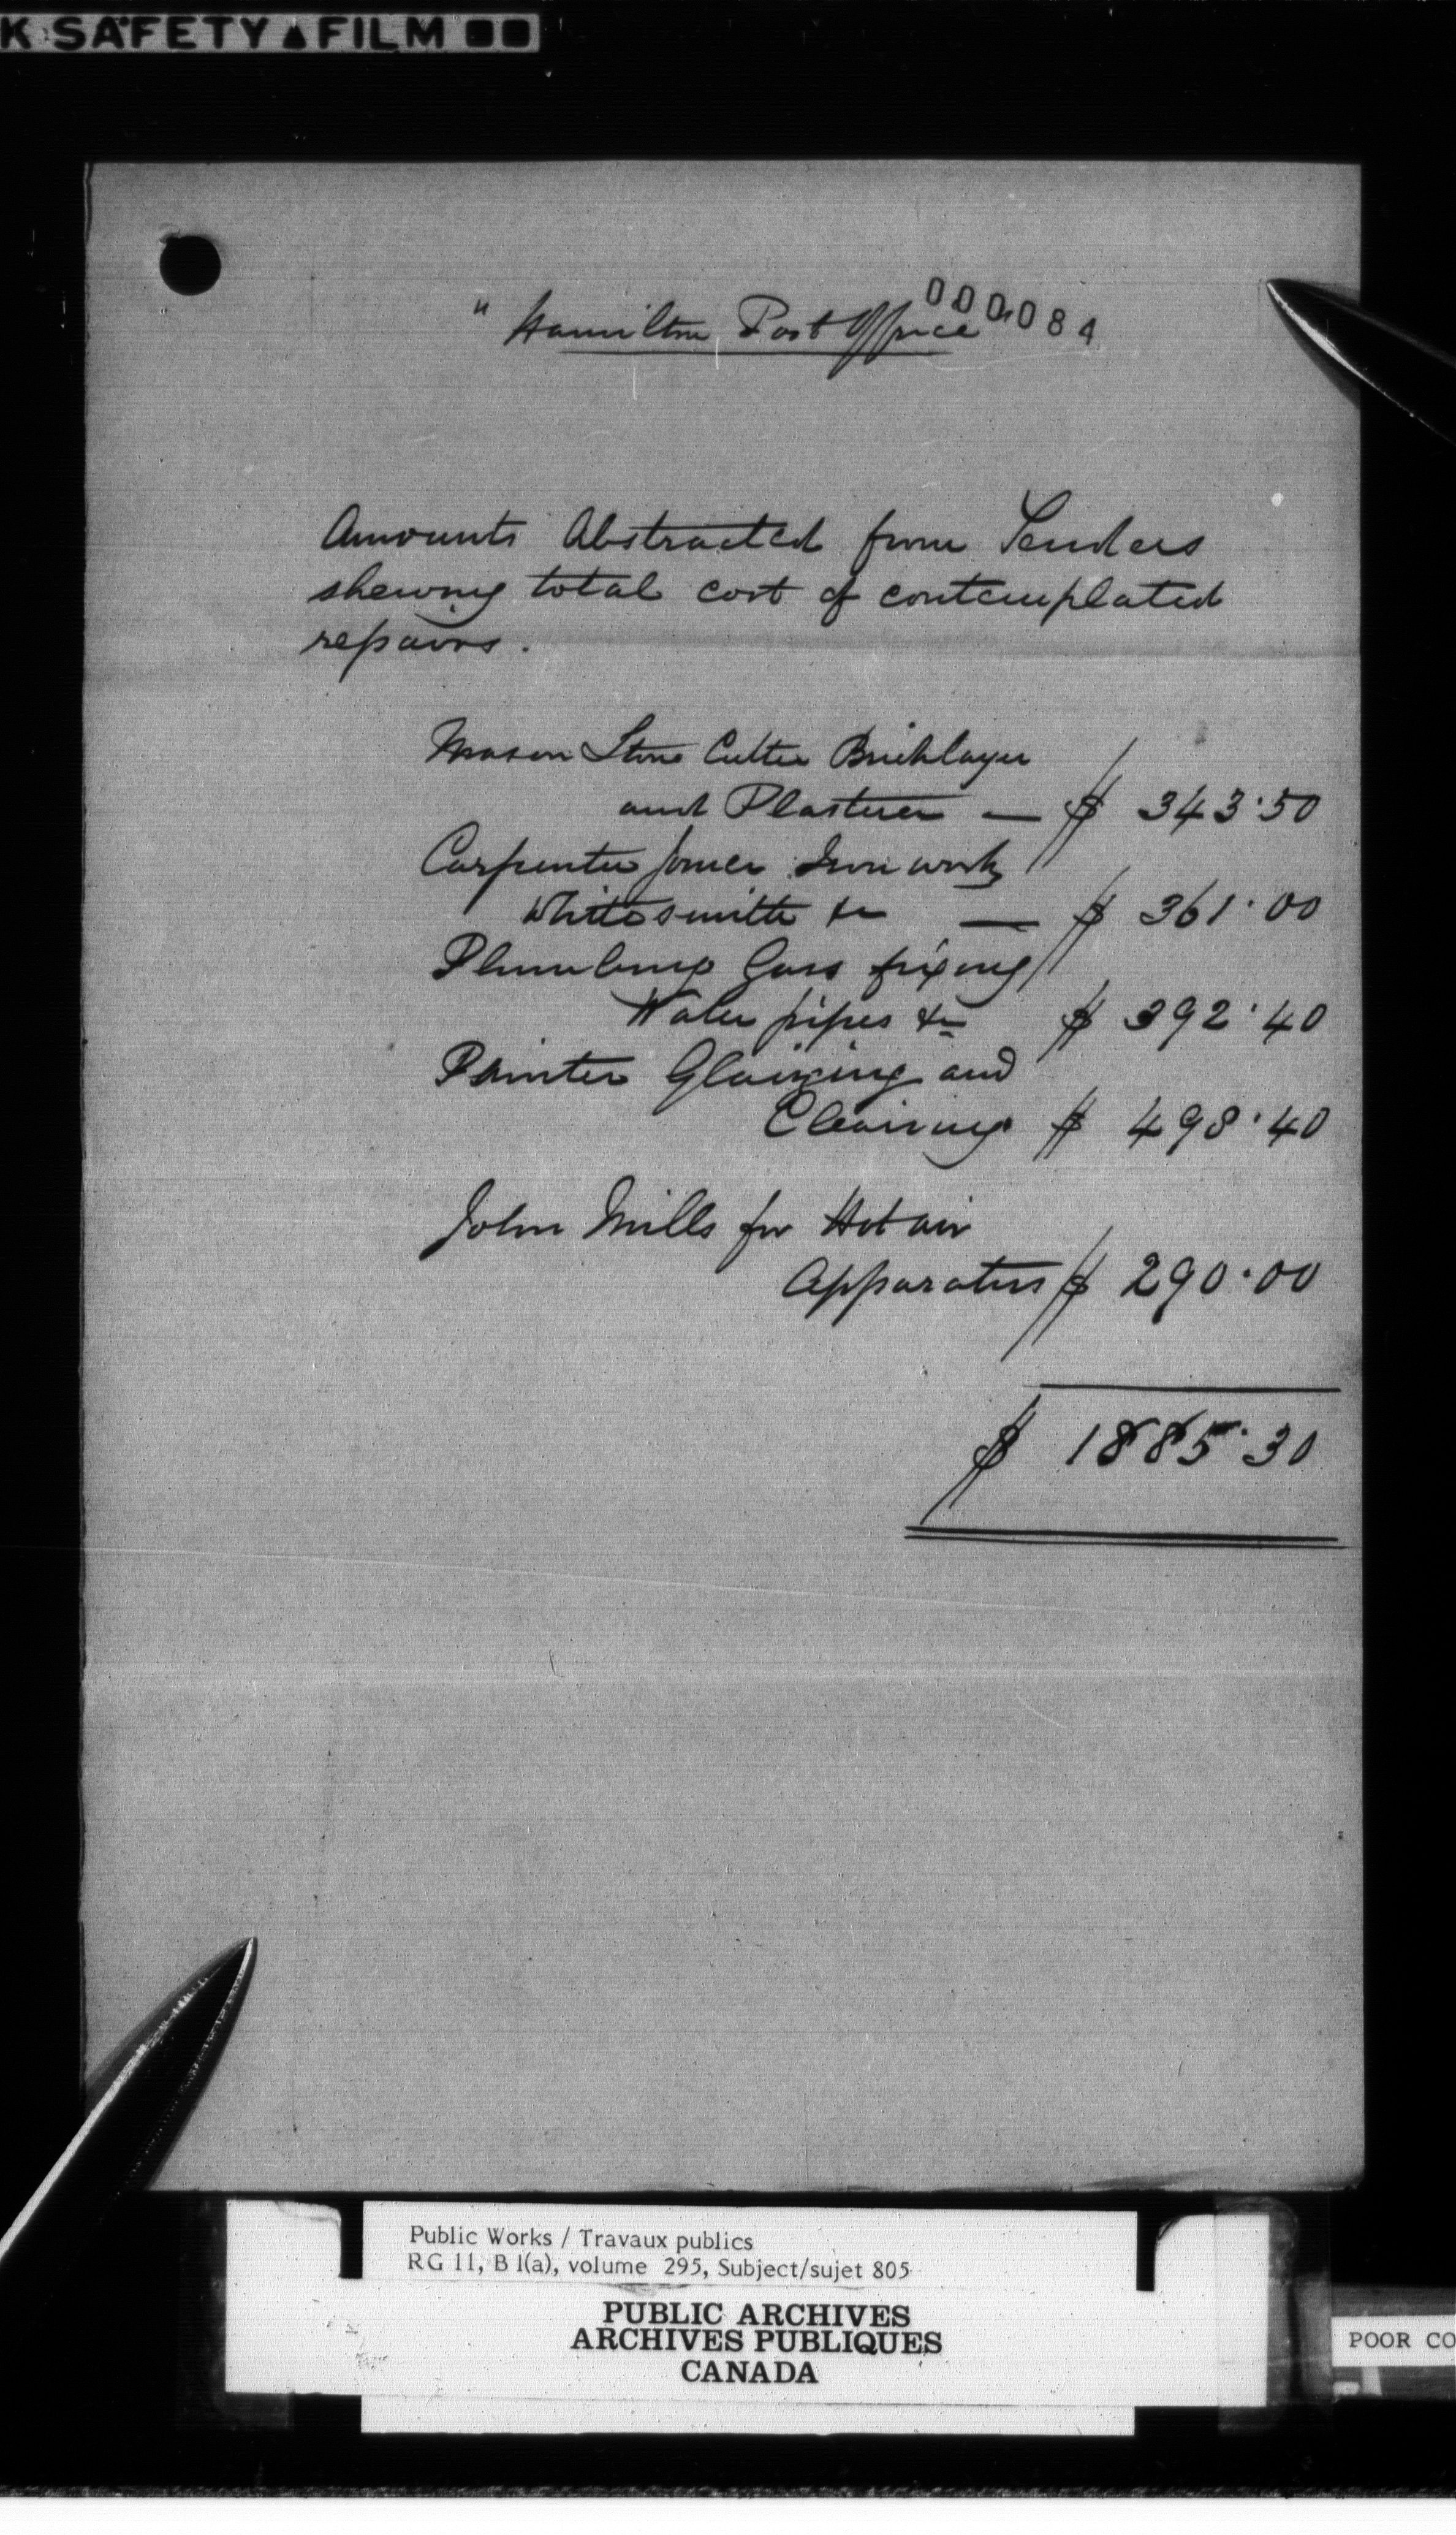 K SAFETY ▲ FILM ■■
000084
" Hamilton Post Office "
Amounts Abstracted from Tenders
shewing total cost of contemplated
repairs.
Mason Stone Cutter Bricklayer
and Plasterer — $ 343.50
Carpenter Joiner Iron work
Whitesmith &c — $ 361.00
Plumbing Gass fixing
Water pipes &c $ 392.40
Painter Glaizing and
Cleaning $ 498.40
John Mills for Hot air
Apparatus $ 290.00
$ 1885.30
Public Works / Travaux publics
RG 11, B 1(a), volume 295, Subject/sujet 805
PUBLIC ARCHIVES
ARCHIVES PUBLIQUES
CANADA
POOR CO